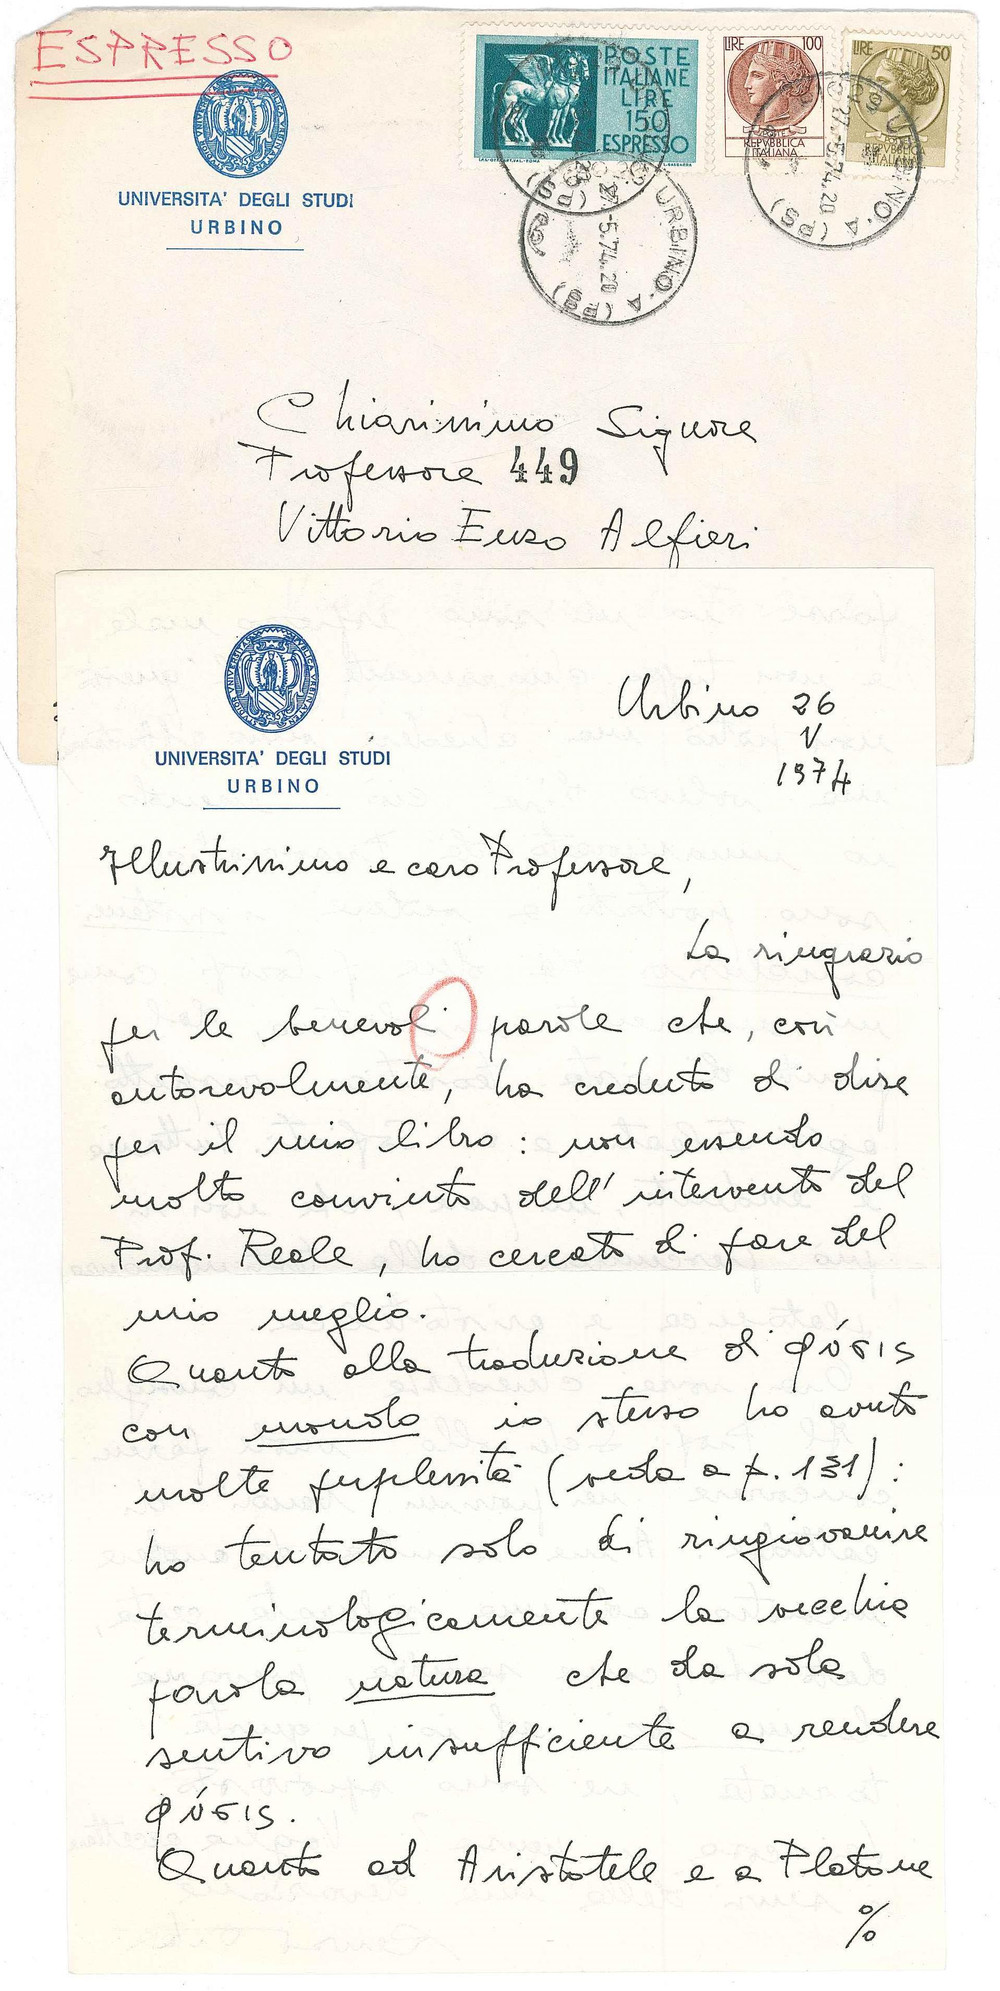 ESPRESSO
UNIVERSITA' DEGLI STUDI
URBINO
POSTE
ITALIANE
LIRE
150
ESPRESSO
LIRE 100
REPVBBLICA
ITALIANA
LIRE 50
REPVBBLICA
ITALIANA
URBINO·A (PS)
27.-5.74.20
URBINO·A (PS)
27.-5.74.20
Chiarissimo Signore
Professore 449
Vittorio Enzo Alfieri
UNIVERSITA' DEGLI STUDI
URBINO
Urbino 26
V
1974
Illustrissimo e caro Professore,
La ringrazio
per le benevoli parole che, così
autorevolmente, ha creduto di dire
per il mio libro: non essendo
molto convinto dell'intervento del
Prof. Reale, ho cercato di fare del
mio meglio.
Quanto alla traduzione di φύσις
con mondo io stesso ho avuto
molte perplessità (veda a p. 131):
ho tentato solo di ringiovanire
terminologicamente la vecchia
parola natura che da sola
sentivo insufficiente a rendere
φύσις.
Quanto ad Aristotele e a Platone
%